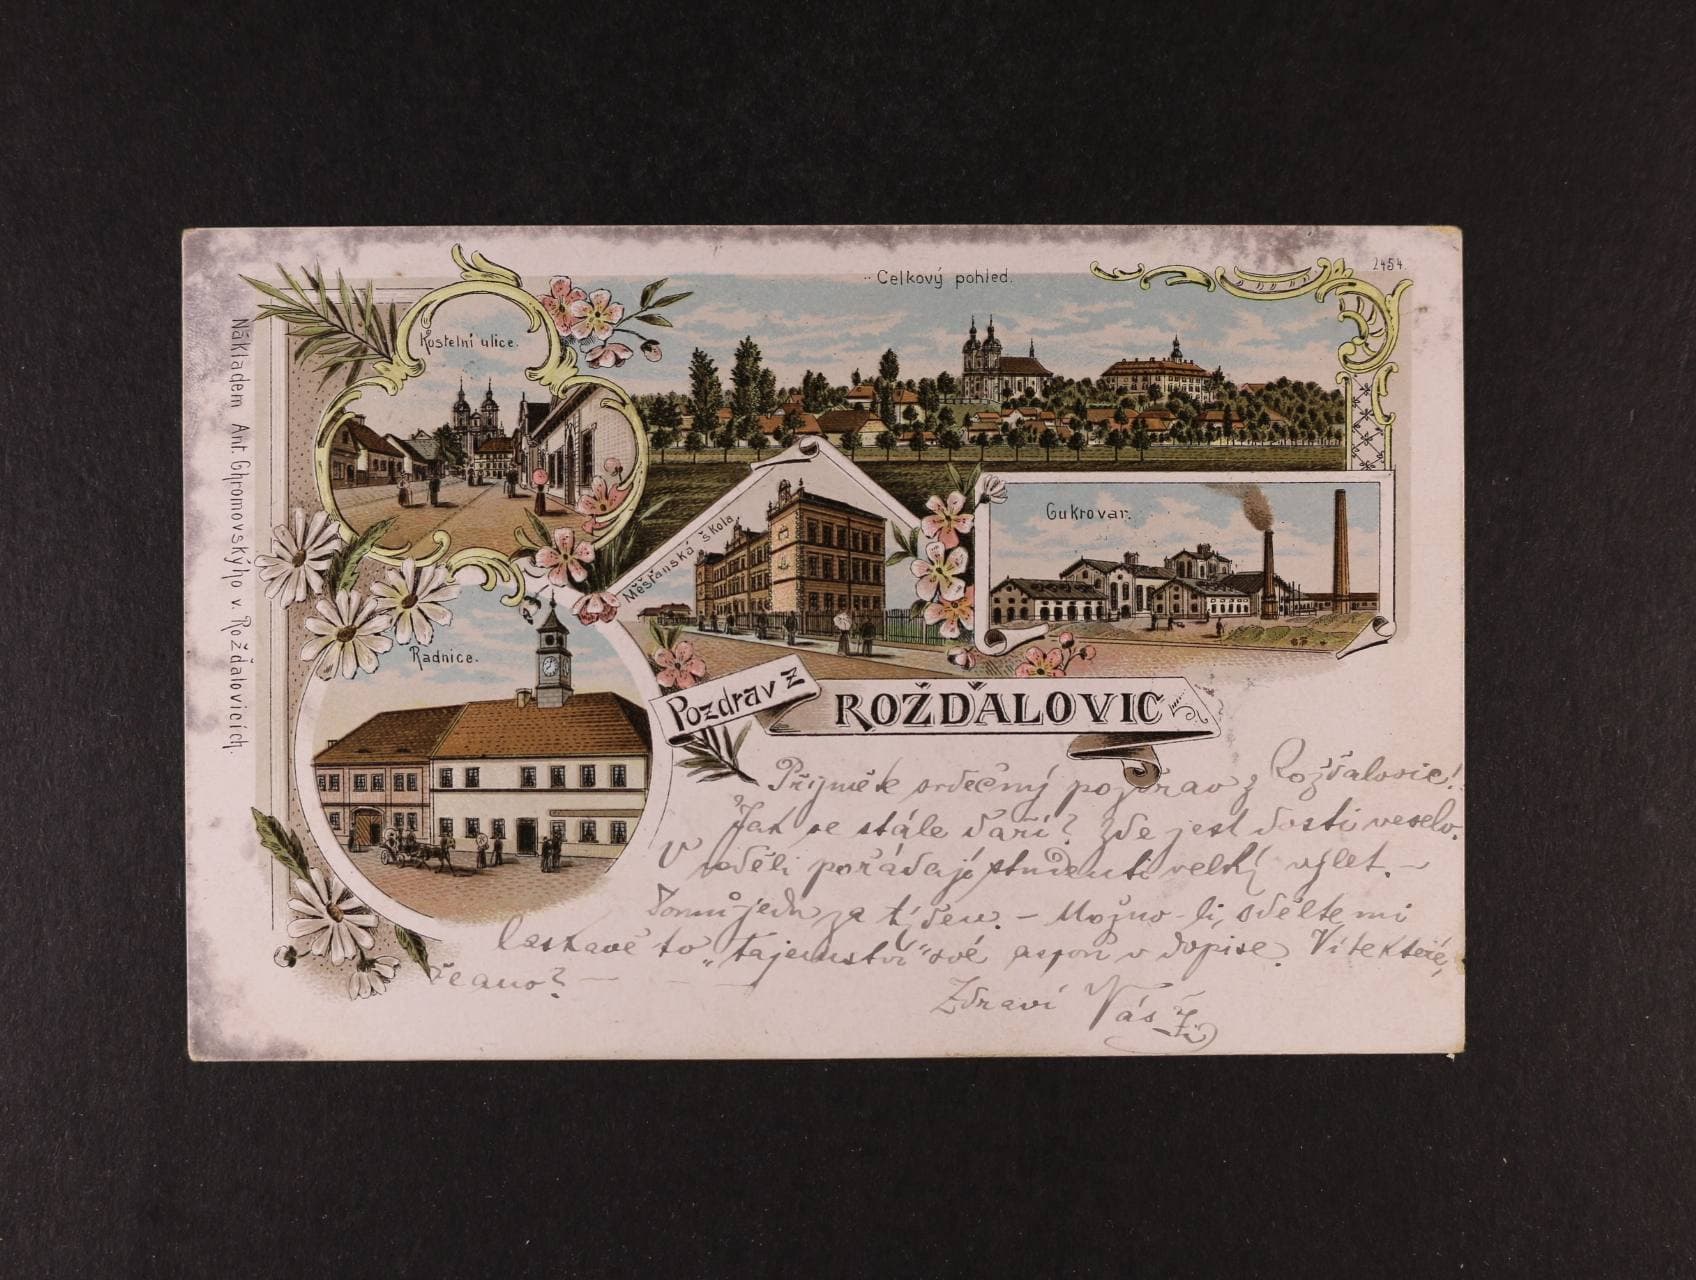 Celkový pohled.
2454.
Kostelní ulice.
Měšťanská škola.
Cukrovar.
Radnice.
Pozdrav z
ROŽĎALOVIC
Nákladem Ant. Chromovskýho v Rožďalovicích.
Přijměte srdečný pozdrav z Rožďalovic!
Jak se stále daří? Zde jest dosti veselo.
V neděli pořádají studenti velký výlet. –
Domů jedu za týden. – Možno-li, sdělte mi
laskavě to „tajemství“ své aspoň v dopise. Víte které,
že ano? – – –
Zdraví Vás